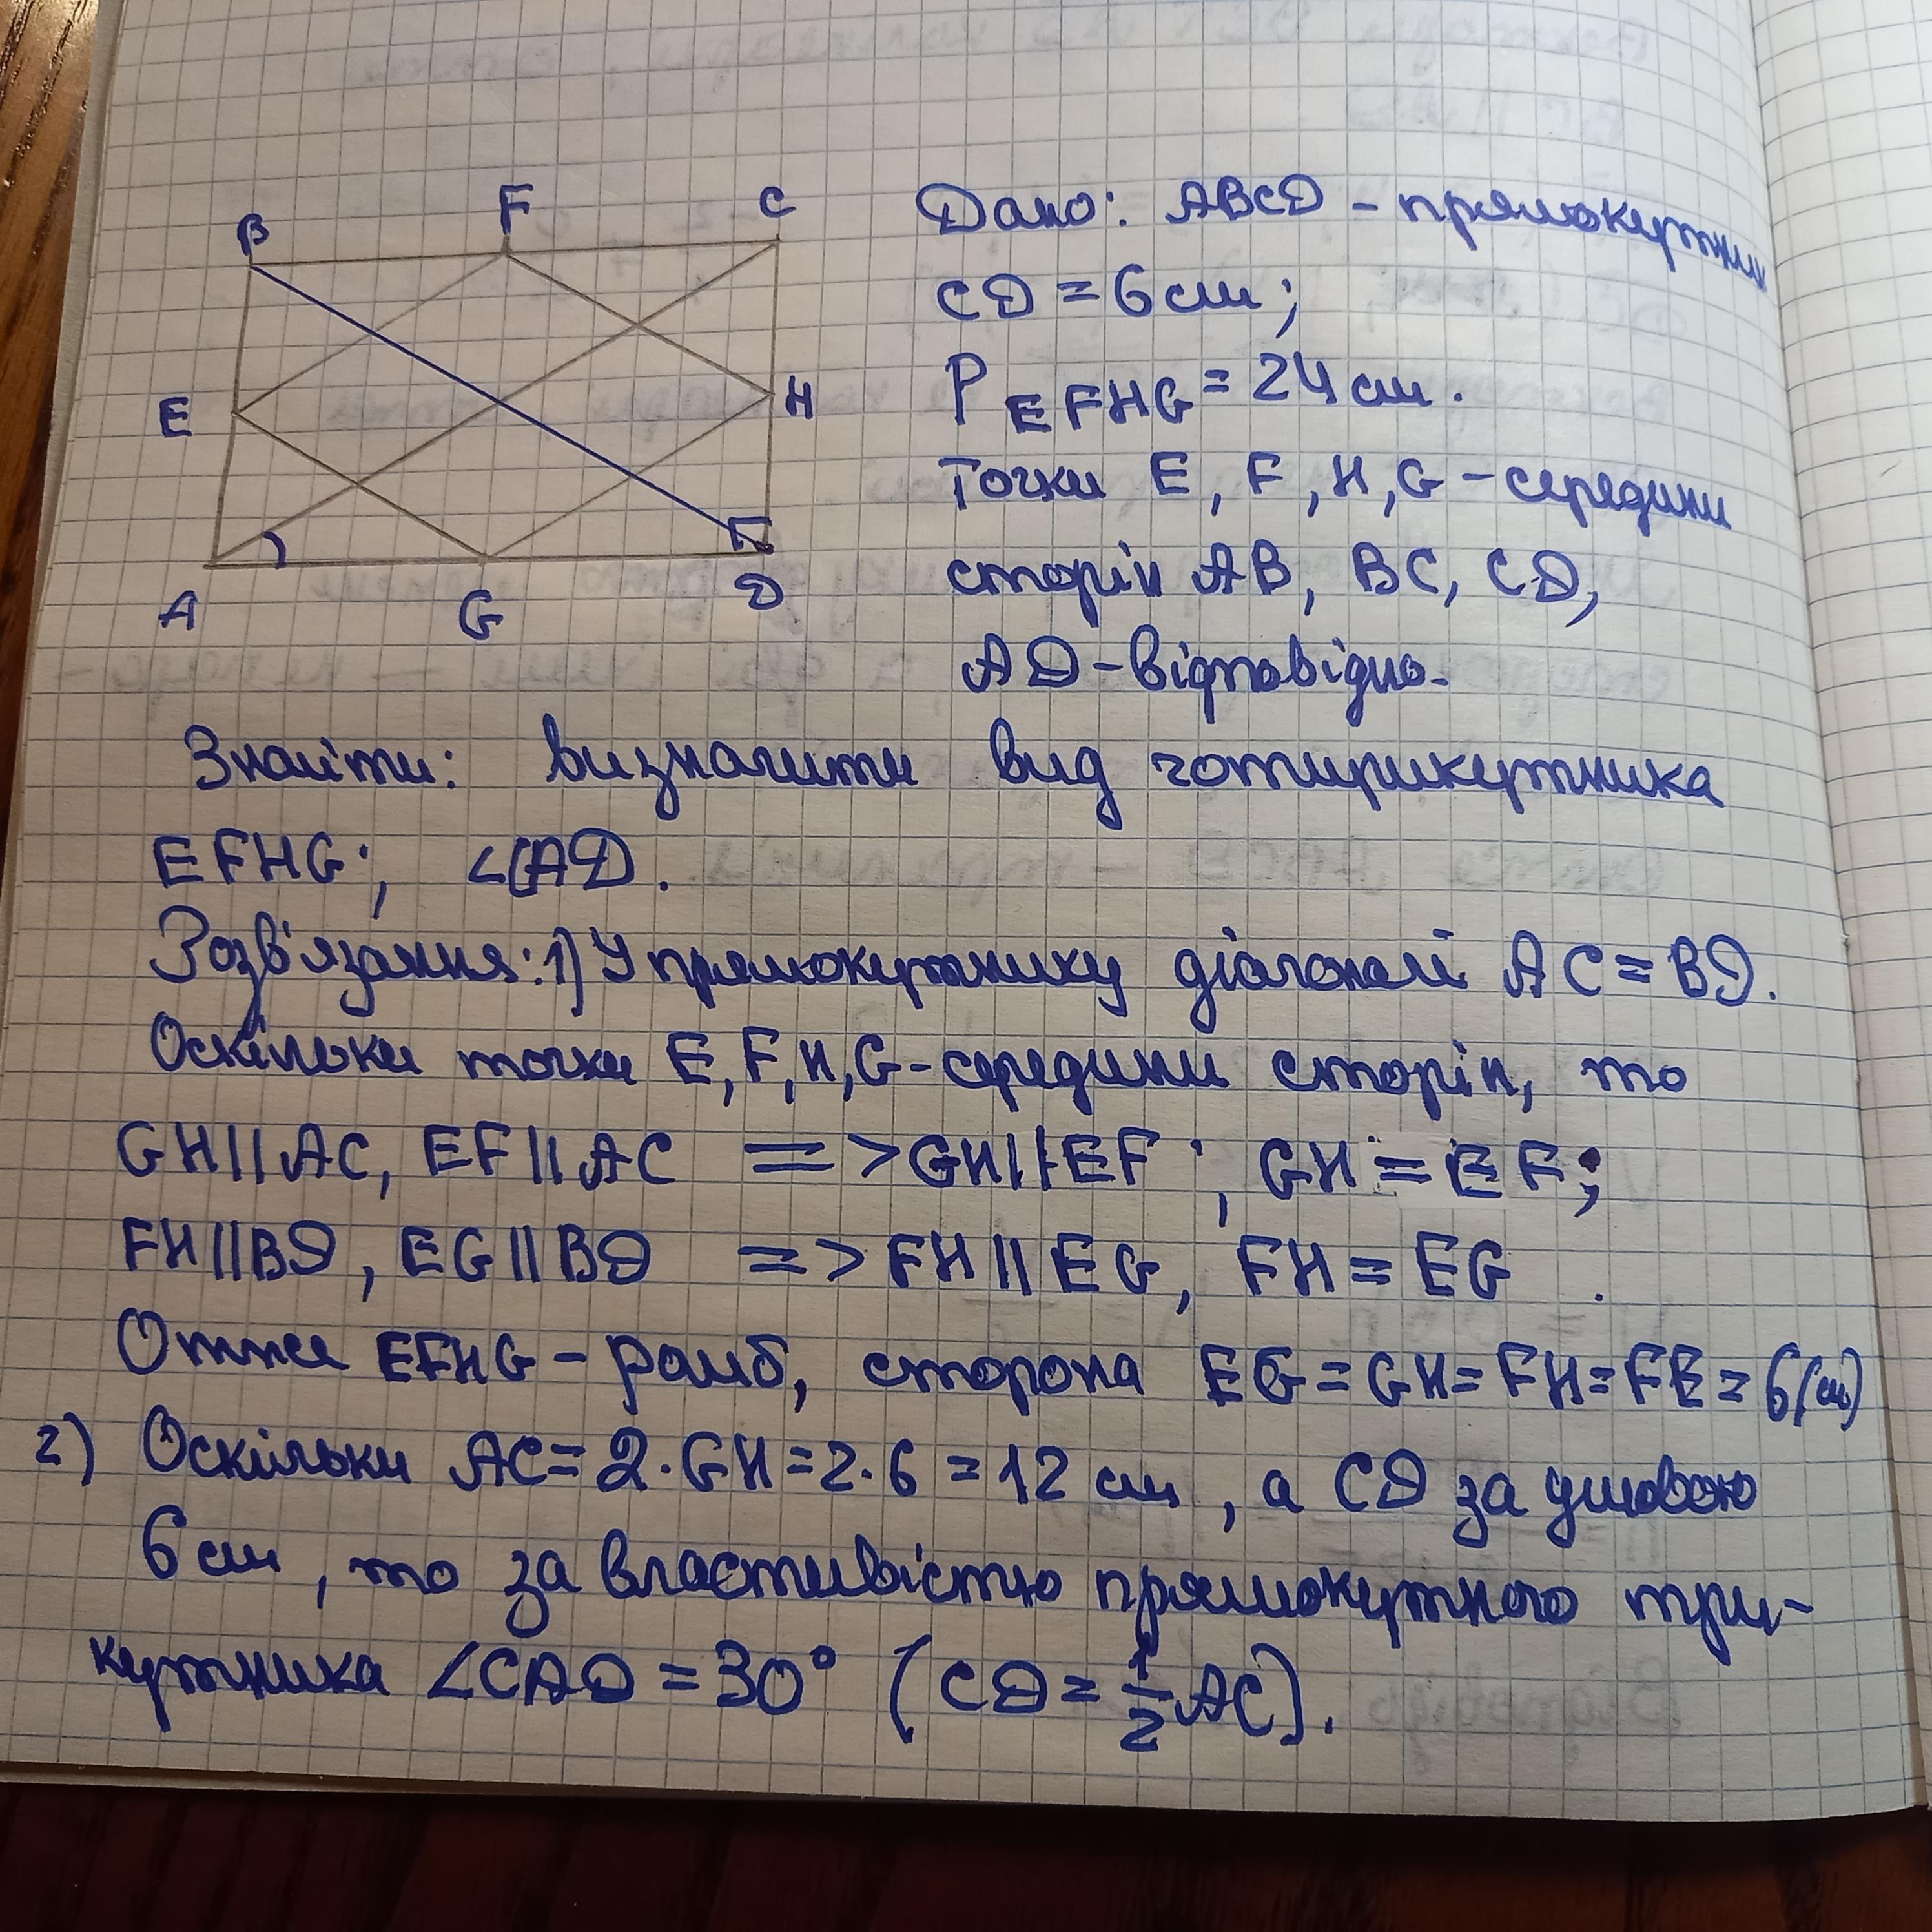 B F C
E H
A G D
Дано: ABCD – прямокутник
CD = 6 см;
P EFHG = 24 см.
Точки E, F, H, G – середини
сторін AB, BC, CD,
AD – відповідно.
Знайти: визначити вид чотирикутника
EFHG; ∠CAD.
Розв'язання: 1) У прямокутнику діагоналі AC = BD.
Оскільки точки E, F, H, G – середини сторін, то
GH || AC, EF || AC => GH || EF; GH = EF;
FH || BD, EG || BD => FH || EG, FH = EG.
Отже EFHG – ромб, сторона EG = GH = FH = FE = 6 (см)
2) Оскільки AC = 2·GH = 2·6 = 12 см, а CD за умовою
6 см, то за властивістю прямокутного три-
кутника ∠CAD = 30° (CD = 1/2 AC).